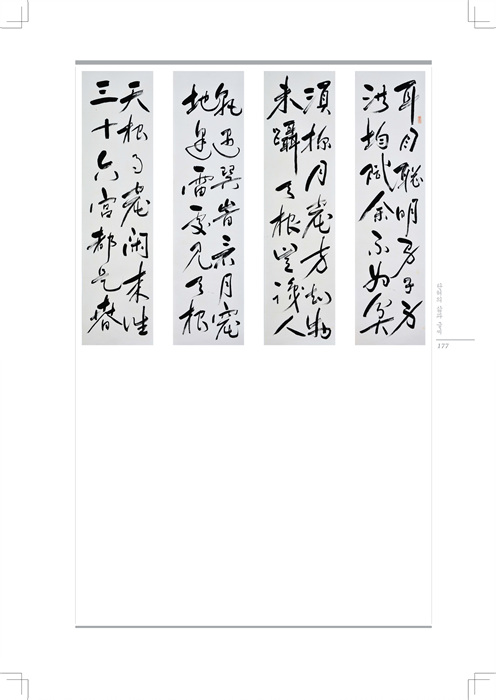 耳目聰明男子身
洪均賦余不為貧
須探月窟方知物
未躡天根豈識人
乾遇巽時月窟
地逢雷處見天根
天根月窟閑來往
三十六宮都是春
177